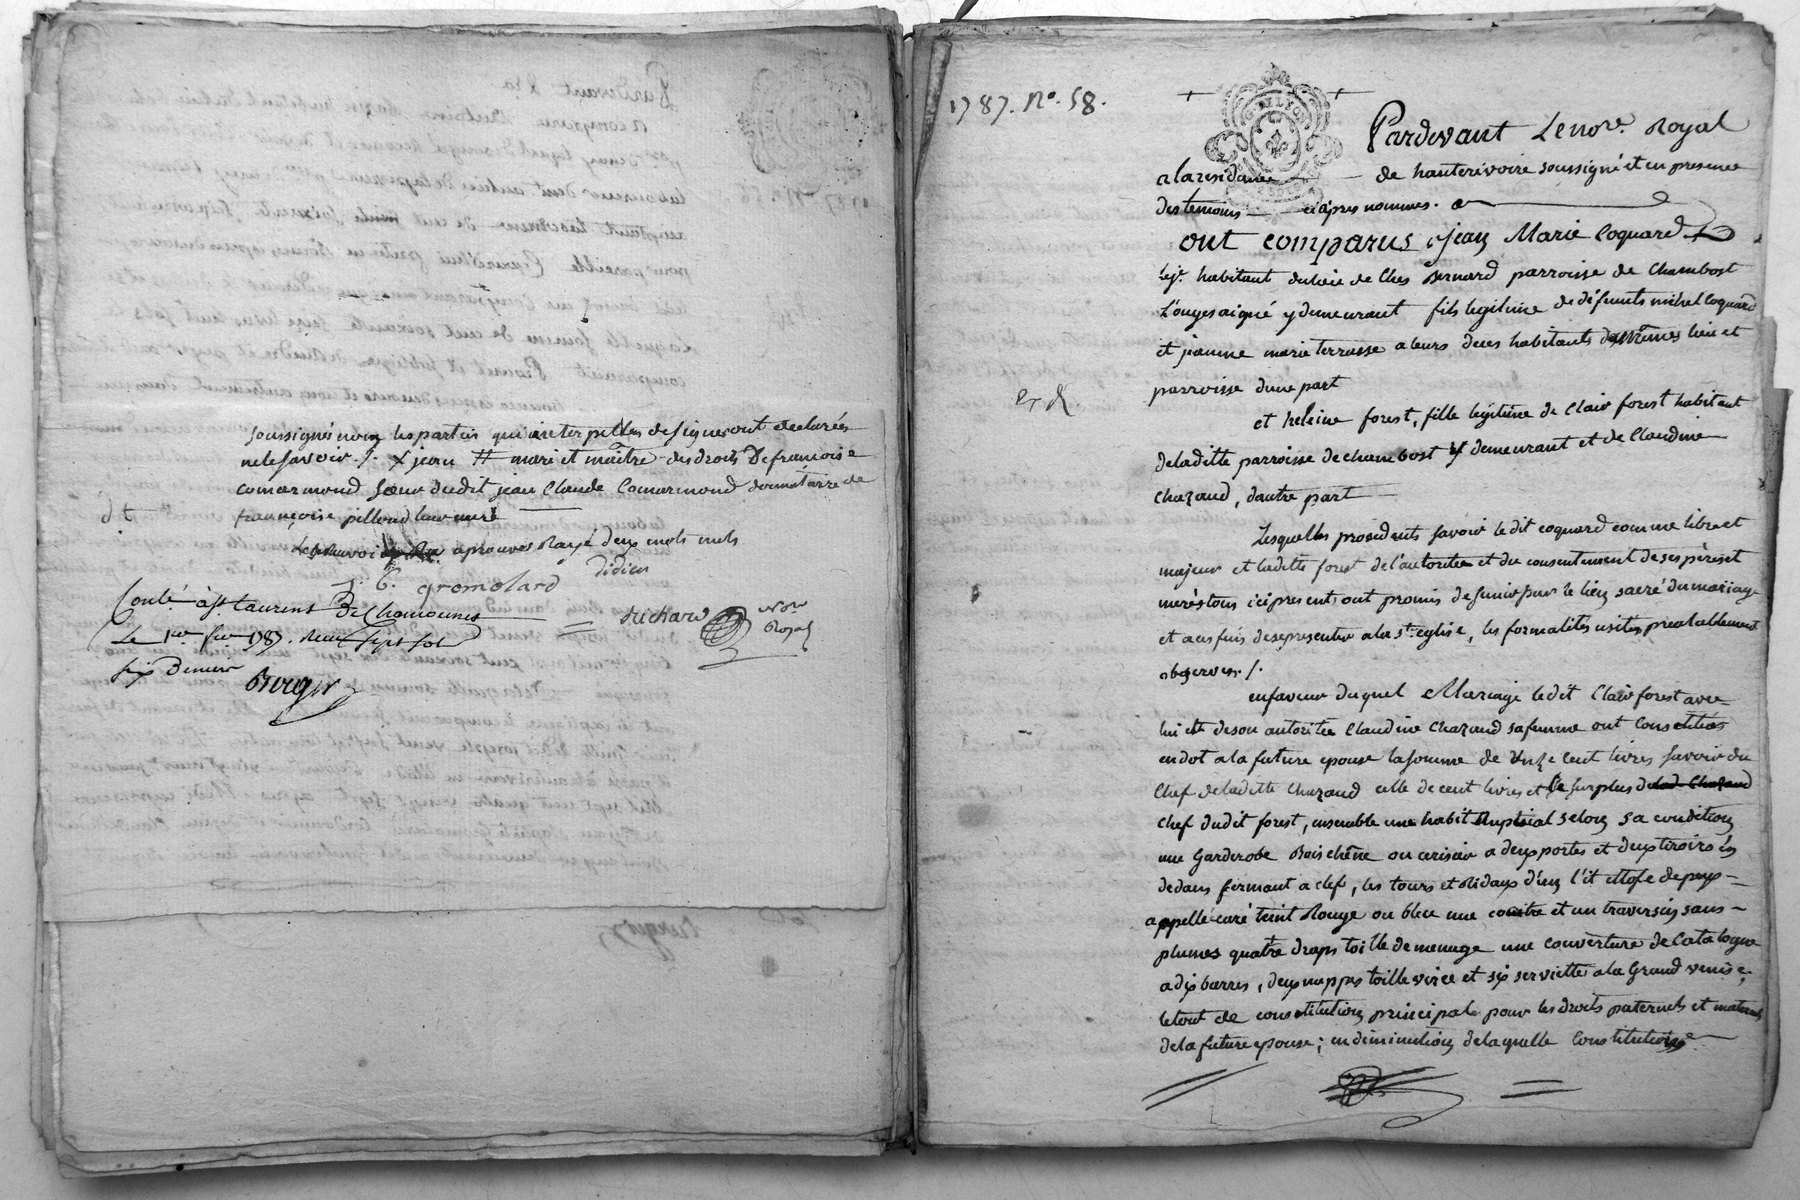 soussigné non les parties qui interpellées de signer ont déclarés
ne le savoir ./. x jean # mari et maître des droits De françoise
comarmond sœur dudit jean Claude Comarmond donnatairre de
françoise pilloud leur mere
dt
aprouvés Rayé deux mots nuls
didier
J. C. gromolard
Conlé. à St. Laurent De Chamousset
Duchard Nore
Royal
Le 1er fer 1787. Reçu sept sols
six Deniers
Berger
1787. No. 58.
Pardevant Le nore. Royal
a la residence de hauterivoire soussigné et en presence
des temoins ci après nommes.
ont comparus jean Marie Coquard
lejr. habitant du lieu de Ches Bernard parroisse de Chambost
Longesaigne y demeurant fils legitime de défunts michel Coquard
et jeanne marie terrasse a leurs deces habitants des mêmes lieu et
parroisse dune part
et R.
et heleine forest, fille légitime de Clair forest habitant
de laditte parroisse de chambost y demeurant et de Claudine
Chazaud, dautre part
Lesquelles procedants savoir le dit coquard comme libre et
majeur et ladette forest de l'autoritee et du consentement de ses père et
mere tous ici presents ont promis de sunir par le lien sacré du mariage
et a ces fins de se presenter a la ste. eglise, les formalités usitées préalablement
observées ./.
en faveur duquel Mariage le dit Clair forest avec
lui et de son autoritée Claudine Chazaud sa femme ont Constitués
en dot a la future epouse la somme de Onze Cent livres savoir du
Chef de ladette Chazaud celle de cent livres et le surplus de lad Chazaud
chef dudit forest, ensemble une habit Nuptial selon sa condition
une Garderobe Bois chêne ou cerisier a deux portes et deux tiroirs en
dedans fermant a clef, les tours et Ridaux d'un l'it ettofe de pays
appellé caré teint Rouge ou bleu une couitre et un traversin sans
plumes quatre draps toille de menage une couverture de Catalogne
a dix barres, deux nappes toille virée et six serviettes a la Grand venise,
le tout de constitution principale pour les droits paternels et maternels
de la future epouse; en diminution de laquelle Constitution